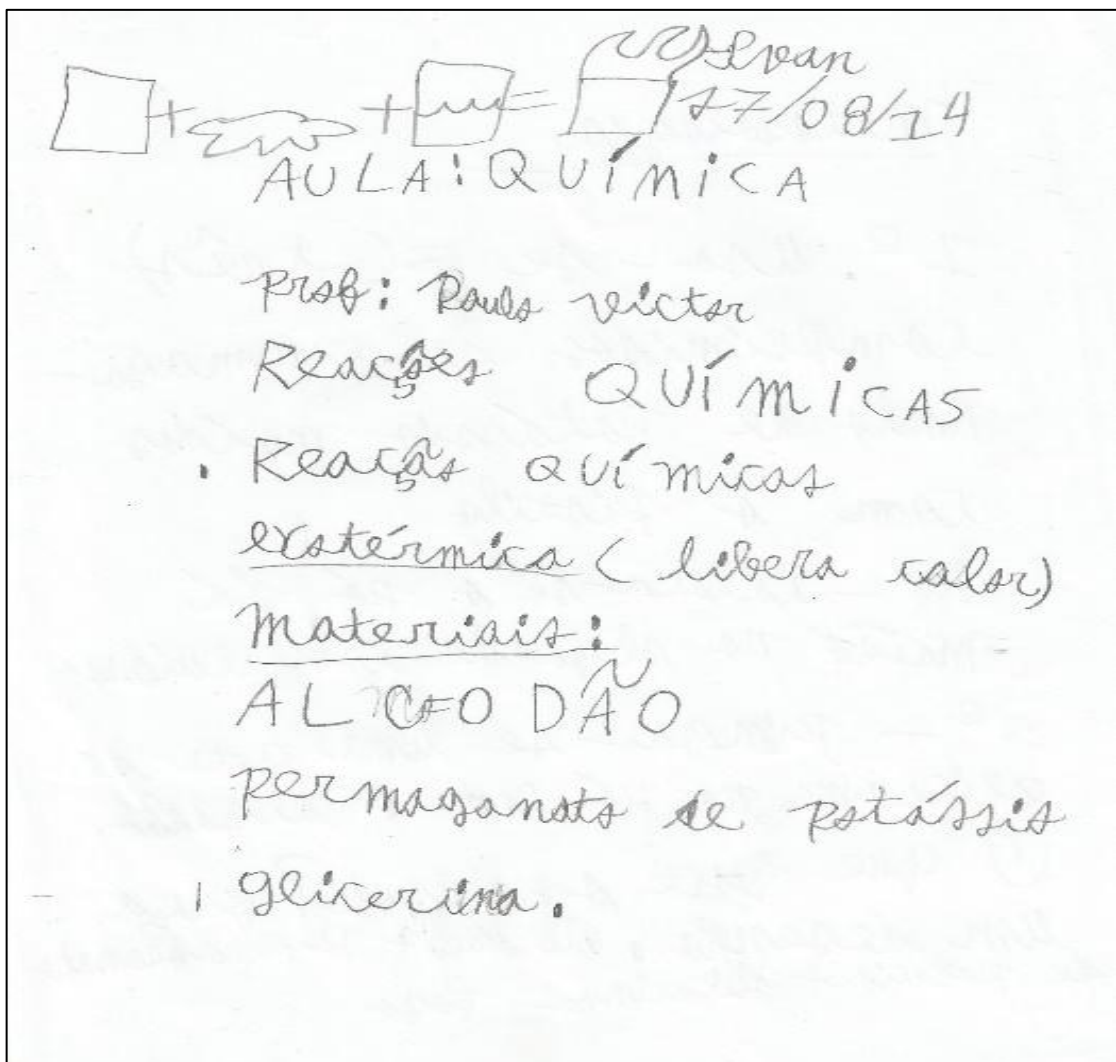 Ivan
17/08/14
AULA: QUÍMICA
prof: Paulo victor
Reações QUÍMICAS
. Reação QUÍmicas
exotérmica (libera calor)
materiais:
ALGODÃO
permaganato de potássio
glicerina.